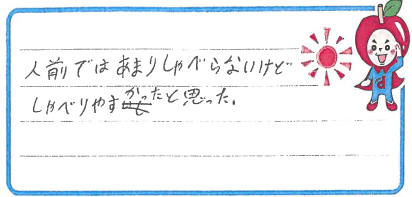 人前ではあまりしゃべらないけど
しゃべりやすかったと思った。